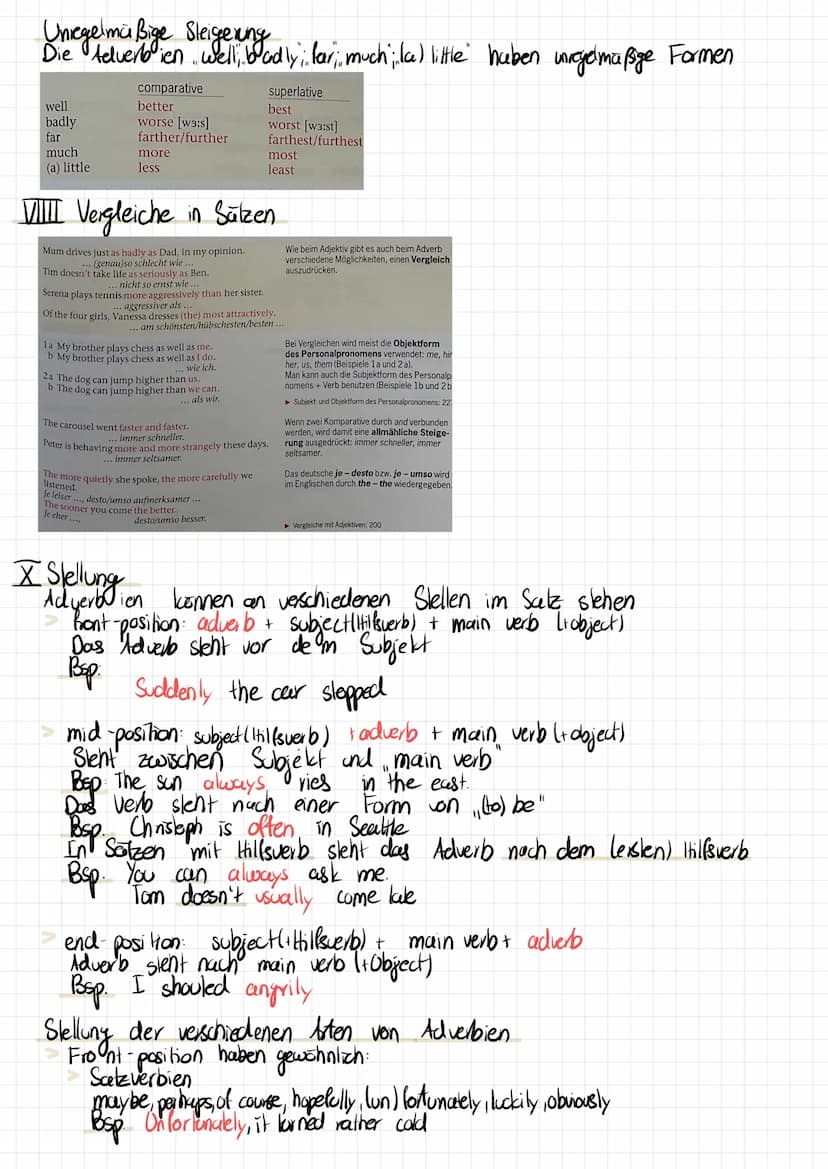 Unregelmäßige Steigerung
Die Adverbien „well", badly"; far"; much"; (a) little" haben unregelmäßige Formen
comparative superlative
well better best
badly worse [wɜ:s] worst [wɜ:st]
far farther/further farthest/furthest
much more most
(a) little less least
VIIII Vergleiche in Sätzen
Mum drives just as badly as Dad, in my opinion.
... (genau)so schlecht wie ...
Tim doesn't take life as seriously as Ben.
... nicht so ernst wie ...
Serena plays tennis more aggressively than her sister.
... aggressiver als ...
Of the four girls, Vanessa dresses (the) most attractively.
... am schönsten/hübschesten/besten ...
Wie beim Adjektiv gibt es auch beim Adverb
verschiedene Möglichkeiten, einen Vergleich
auszudrücken.
1a My brother plays chess as well as me.
b My brother plays chess as well as I do.
... wie ich.
2a The dog can jump higher than us.
b The dog can jump higher than we can.
... als wir.
Bei Vergleichen wird meist die Objektform
des Personalpronomens verwendet: me, hi
her, us, them (Beispiele 1a und 2a).
Man kann auch die Subjektform des Personalp
nomens + Verb benutzen (Beispiele 1b und 2b
▶ Subjekt und Objektform des Personalpronomens: 22
The carousel went faster and faster.
... immer schneller.
Peter is behaving more and more strangely these days.
... immer seltsamer.
Wenn zwei Komparative durch and verbunden
werden, wird damit eine allmähliche Steige-
rung ausgedrückt: immer schneller, immer
seltsamer.
The more quietly she spoke, the more carefully we
listened.
Je leiser ..., desto/umso aufmerksamer ...
The sooner you come the better.
Je eher ..., desto/umso besser.
Das deutsche je – desto bzw. je – umso wird
im Englischen durch the – the wiedergegeben.
▶ Vergleiche mit Adjektiven: 200
X Stellung
Adverbien können an veschiedenen Stellen im Satz stehen
> front-position: adverb + subject(Hilfsverb) + main verb (+object)
Das Adverb steht vor dem Subjekt
Bsp:
Suddenly the car stopped
> mid-position: subject(Hilfsverb) + adverb + main verb (+object)
Steht zwischen Subjekt und „main verb"
Bsp: The sun always ries in the east.
Das Verb steht nach einer Form von „(to) be"
Bsp. Christoph is often in Seattle
In Sätzen mit Hilfsverb steht das Adverb nach dem (ersten) Hilfsverb
Bsp. You can always ask me.
Tom doesn't usually come late
> end-position: subject(+Hilfsverb) + main verb + adverb
Adverb steht nach main verb (+Object)
Bsp. I shouted angrily
Stellung der verschiedenen Arten von Adverbien
> Front-position haben gewöhnlich:
> Satzverbien
maybe, perhaps, of course, hopefully, (un)fortunately, luckily, obviously
Bsp. Unfortunately, it turned rather cold